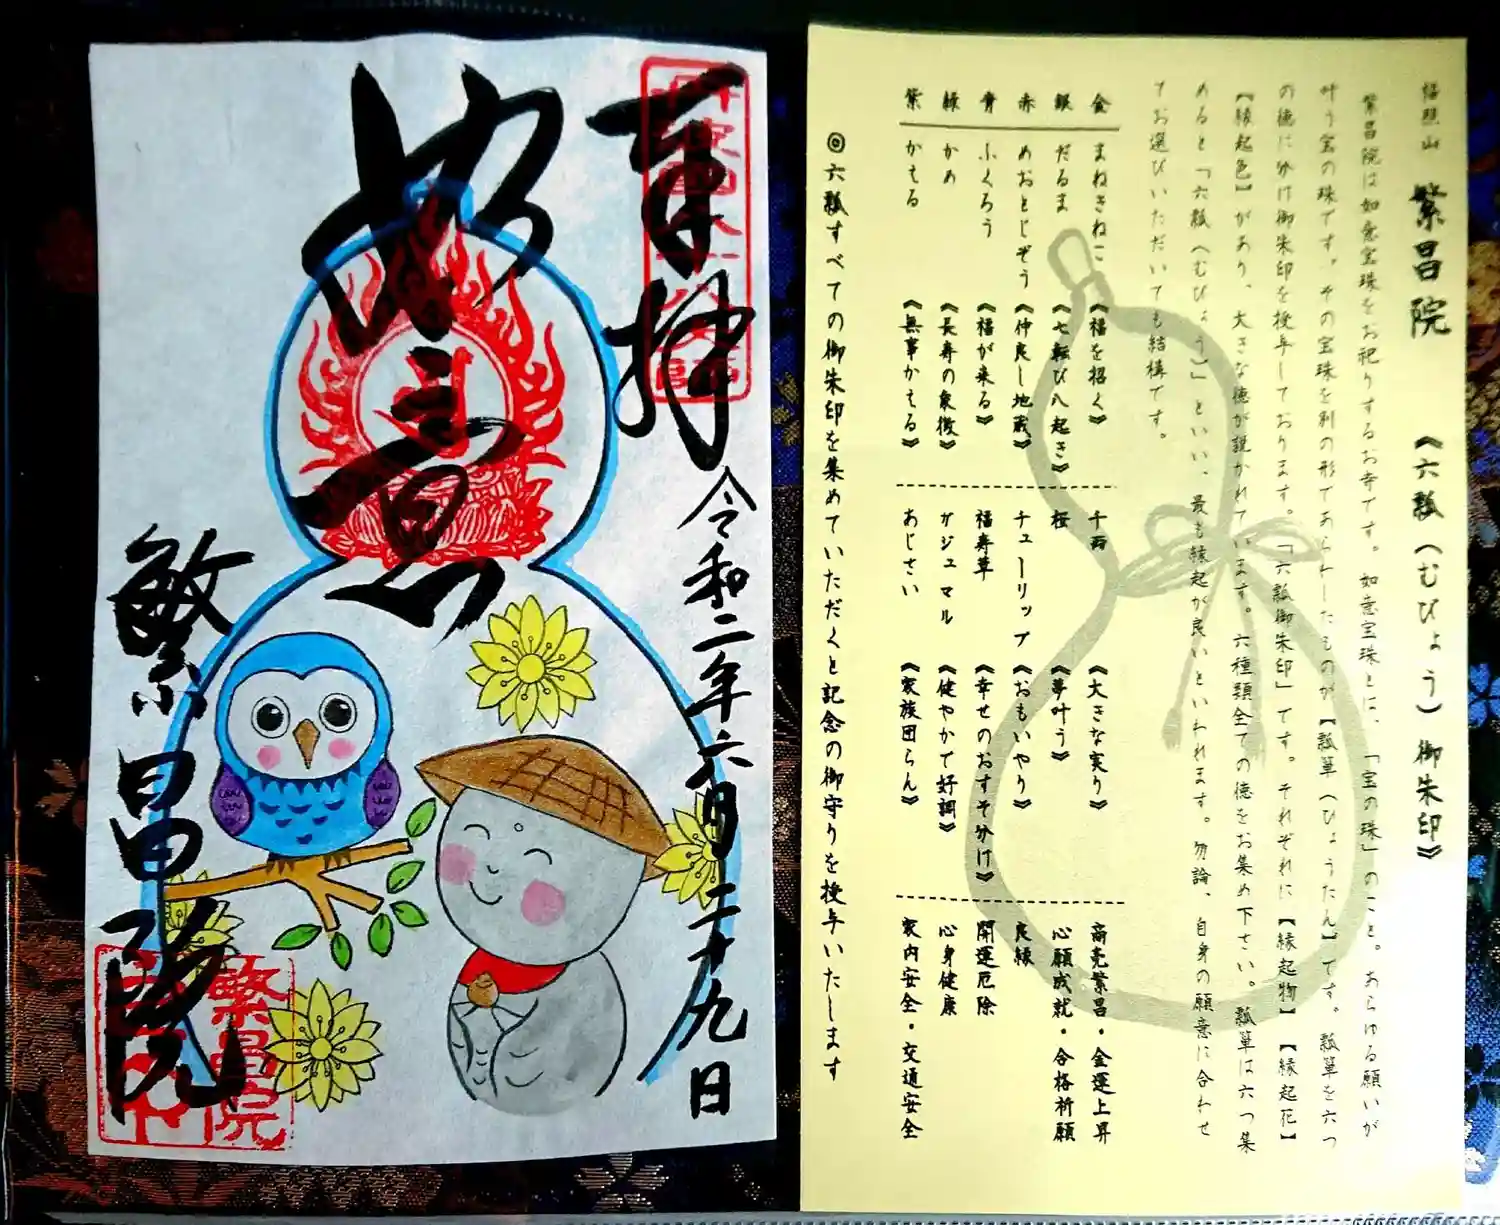 奉拝
令和二年六月二十九日
如意
繁昌院
繁昌院
福照山 繁昌院 《六瓢（むびょう）御朱印》
繁昌院は如意宝珠をお祀りするお寺です。如意宝珠とは、「宝の珠」のこと。あらゆる願いが
叶う宝の珠です。その宝珠を別の形であらわしたものが【瓢箪（ひょうたん】です。瓢箪を六つ
の徳に分け御朱印を授与しております。「六瓢御朱印」です。それぞれに【縁起物】【縁起花】
【縁起色】があり、大きな徳が説かれています。六種類全ての徳をお集め下さい。瓢箪は六つ集
めると「六瓢（むびょう）」といい、最も縁起が良いといわれます。勿論、自身の願意に合わせ
てお選びいただいても結構です。
金 まねきねこ 《福を招く》 千両 《大きな実り》 商売繁昌・金運上昇
銀 だるま 《七転び八起き》 桜 《夢叶う》 心願成就・合格祈願
赤 めおとじぞう 《仲良し地蔵》 チューリップ 《おもいやり》 良縁
青 ふくろう 《福が来る》 福寿草 《幸せのおすそ分け》 開運厄除
緑 かめ 《長寿の象徴》 ガジュマル 《健やかで好調》 心身健康
紫 かえる 《無事かえる》 あじさい 《家族団らん》 家内安全・交通安全
◎六瓢すべての御朱印を集めていただくと記念の御守りを授与いたします